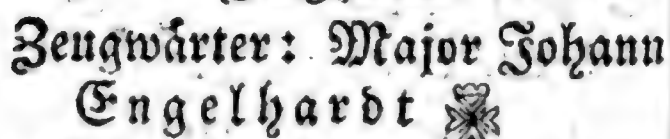 Zeugwärter: Major Johann
Engelhardt